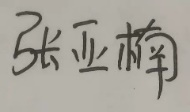 张亚楠